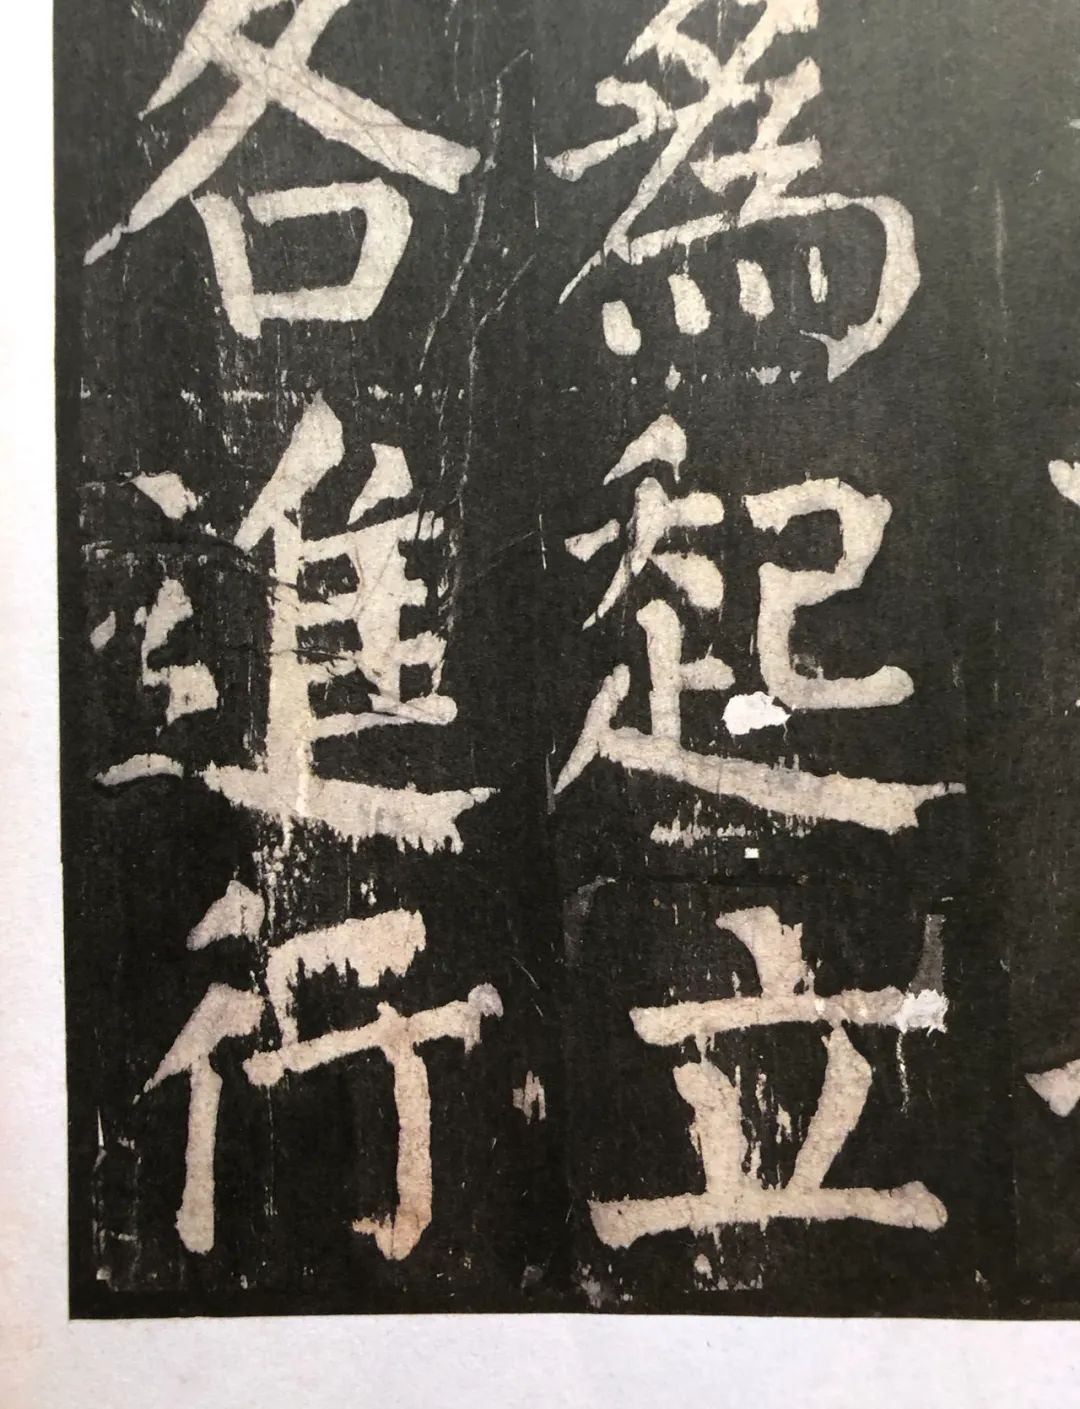 為起立
各進行